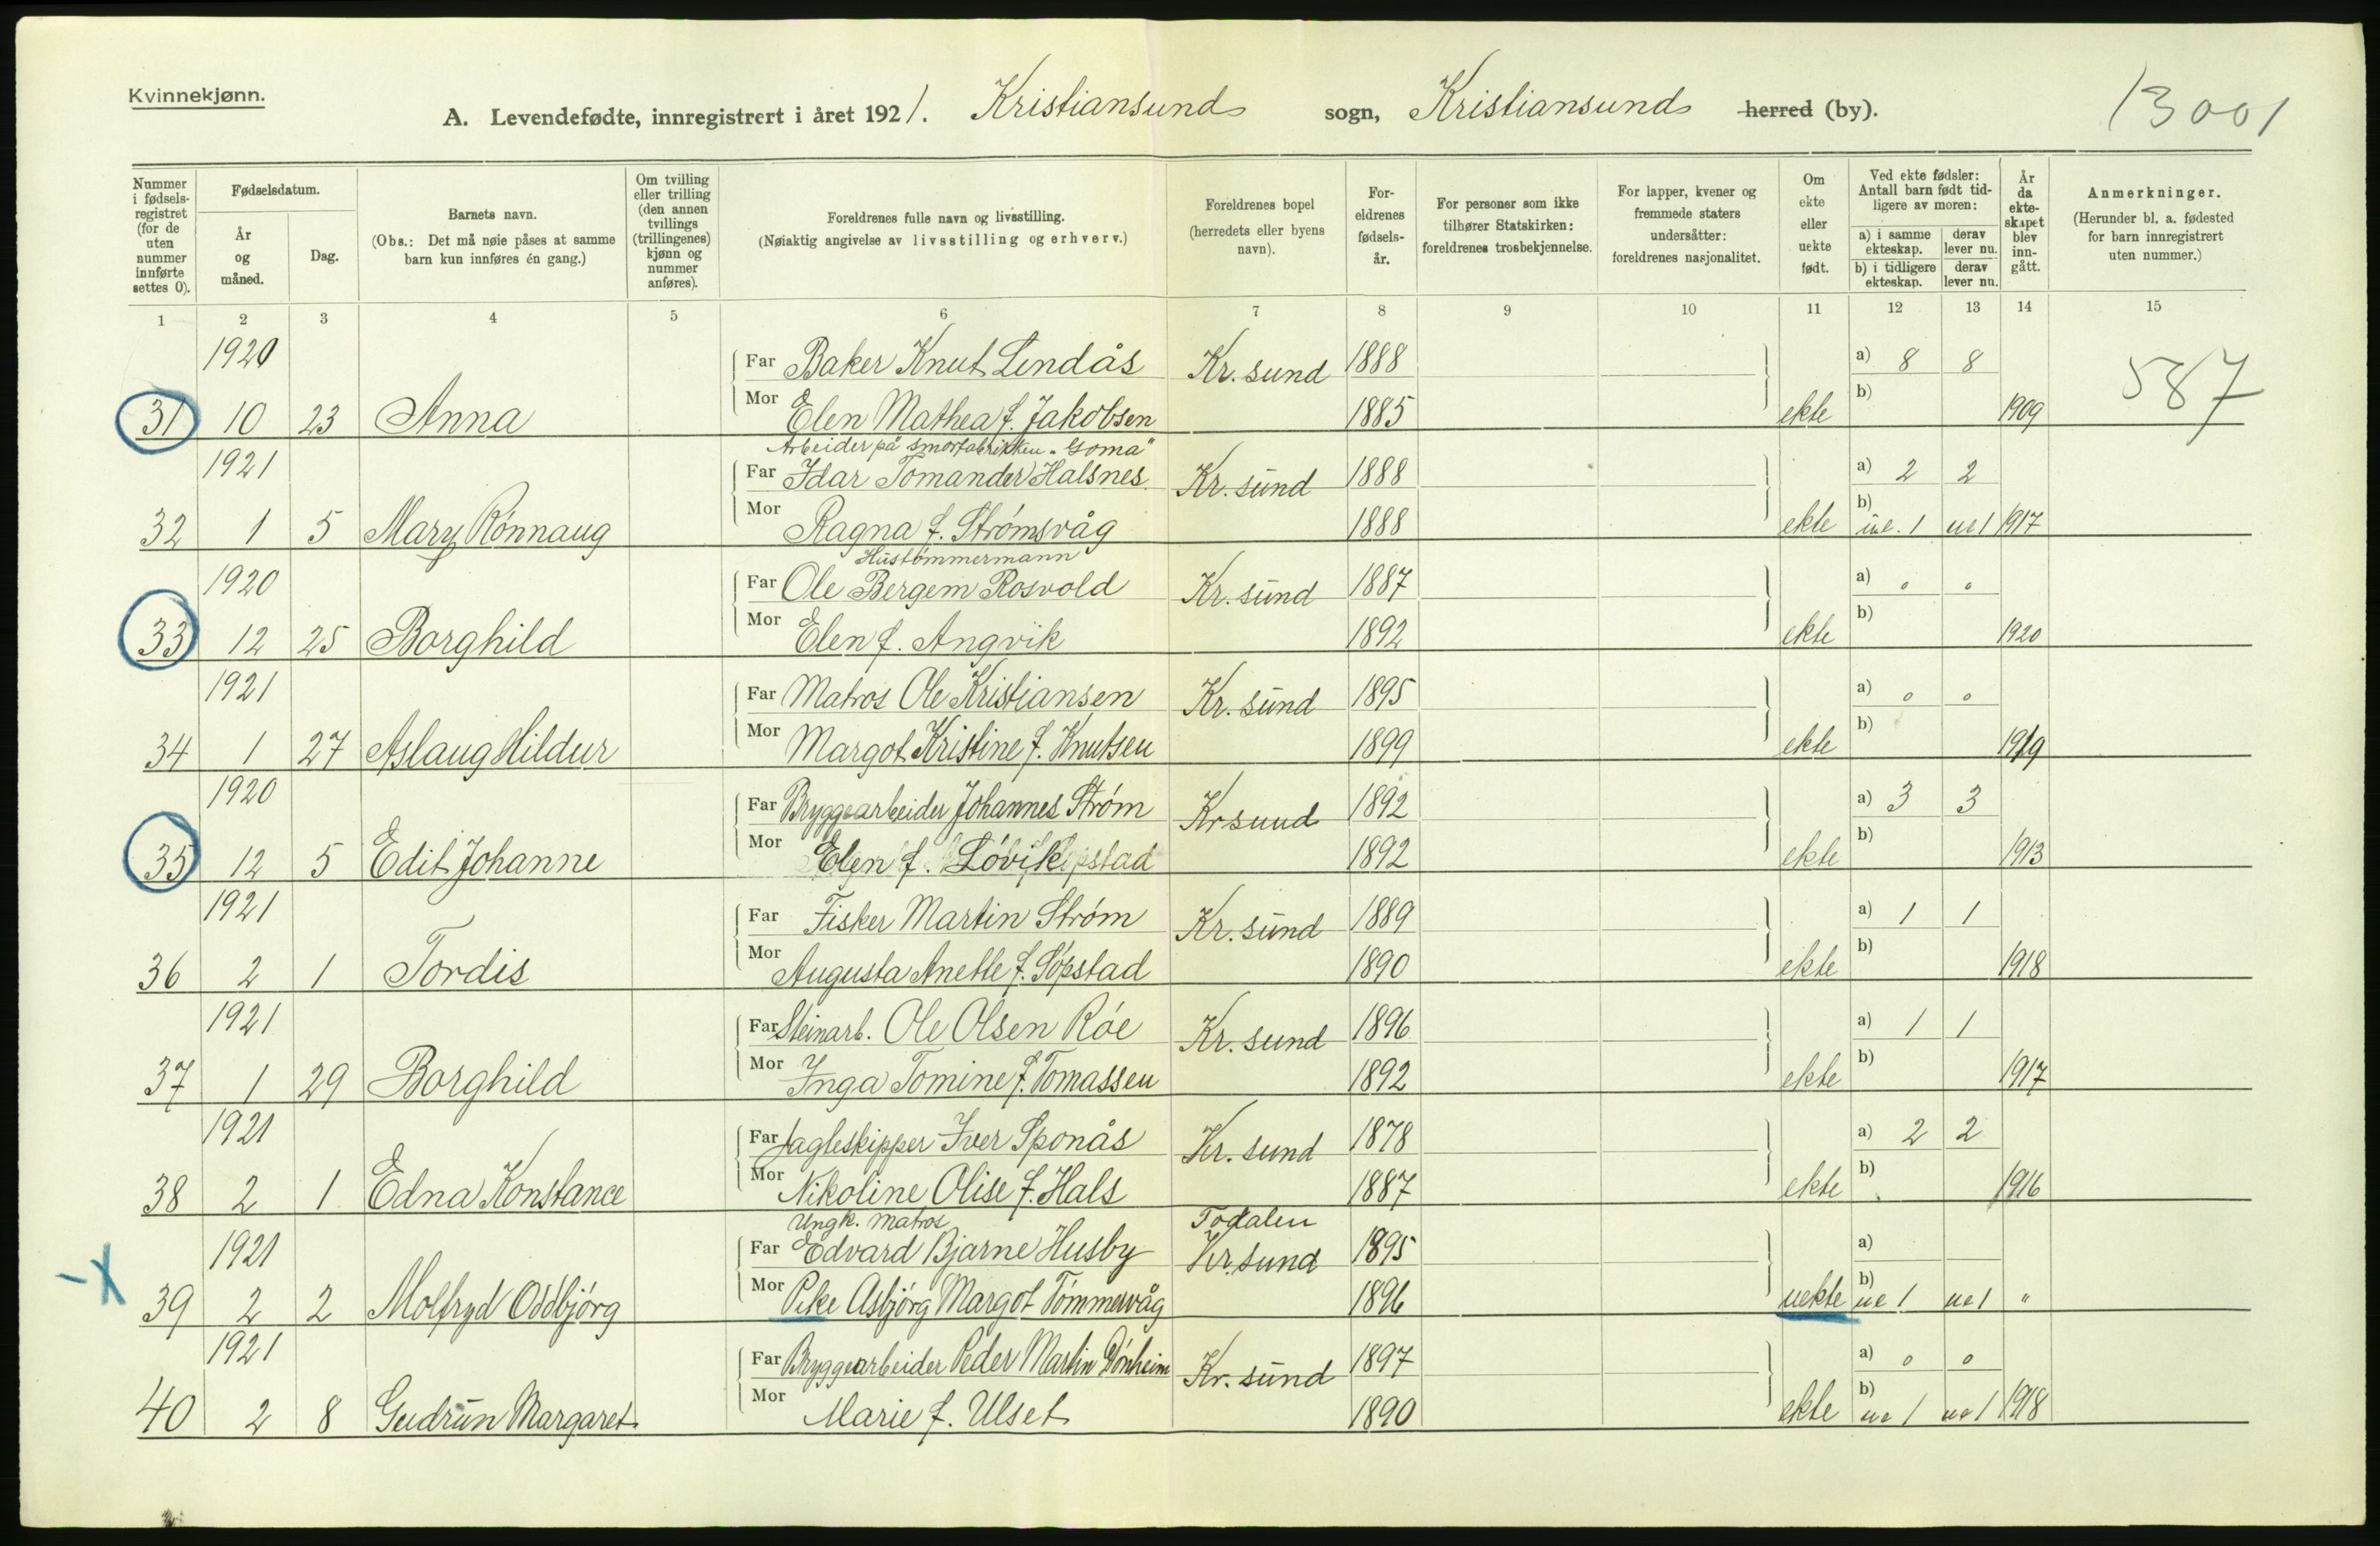 Kvinnekjønn.
A. Levendefødte, innregistrert i året 1921. Kristiansund sogn, Kristiansund herred (by).
13001
Nummer i fødsels-registret (for de uten nummer innførte settes 0).
Fødselsdatum.
År og måned.
Dag.
Barnets navn.
(Obs.: Det må nøie påses at samme barn kun innføres én gang.)
Om tvilling eller trilling (den annen tvillings (trillingenes) kjønn og nummer anføres).
Foreldrenes fulle navn og livsstilling.
(Nøiaktig angivelse av livsstilling og erhverv.)
Foreldrenes bopel (herredets eller byens navn).
For-eldrenes fødsels-år.
For personer som ikke tilhører Statskirken: foreldrenes trosbekjennelse.
For lapper, kvener og fremmede staters undersåtter: foreldrenes nasjonalitet.
Om ekte eller uekte født.
Ved ekte fødsler: Antall barn født tid-ligere av moren:
a) i samme ekteskap.
derav lever nu.
b) i tidligere ekteskap.
derav lever nu.
År da ekte-skapet blev inn-gått.
Anmerkninger.
(Herunder bl. a. fødested for barn innregistrert uten nummer.)
1 2 3 4 5 6 7 8 9 10 11 12 13 14 15
1920 Far Baker Knut Lendås Kr. sund 1888 a) 8 8 587
31 10 23 Anna Mor Elen Mathea f. Jakobsen 1885 ekte b) 1909
Arbeider på smørfabrikken "Goma"
1921 Far Idar Tomander Halsnes Kr. sund 1888 a) 2 2
32 1 5 Mary Rønnaug Mor Ragna f. Strømsvåg 1888 ekte b) ue. 1 ue 1 1917
Hustømmermann
1920 Far Ole Bergem Rosvold Kr. sund 1887 a) 0 0
33 12 25 Borghild Mor Elen f. Angvik 1892 ekte b) 1920
1921 Far Matros Ole Kristiansen Kr. sund 1895 a) 0 0
34 1 27 Aslaug Hildur Mor Margot Kristine f. Knutsen 1899 ekte b) 1919
1920 Far Bryggearbeider Johannes Strøm Kr sund 1892 a) 3 3
35 12 5 Edit Johanne Mor Elen f. Løvik 1892 ekte b) 1913
1921 Far Fisker Martin Strøm Kr. sund 1889 a) 1 1
36 2 1 Tordis Mor Augusta Anette f. Søpstad 1890 ekte b) 1918
1921 Far Steinarb. Ole Olsen Røe Kr. sund 1896 a) 1 1
37 1 29 Borghild Mor Inga Tomine f. Tomassen 1892 ekte b) 1917
1921 Far Jagteskipper Iver Sponås Kr. sund 1878 a) 2 2
38 2 1 Edna Konstance Mor Nikoline Olise f. Hals 1887 ekte b) 1916
Ungk. matros Todalen
1921 Far Edvard Bjarne Husby Kr. sund 1895 a)
39 2 2 Molfryd Oddbjørg Mor Pike Asbjørg Margot Tømmervåg 1896 uekte b) ue 1 ue 1 "
1921 Far Bryggearbeider Peder Martin Dønheim Kr. sund 1897 a) 0 0
40 2 8 Gudrun Margaret Mor Marie f. Ulset 1890 ekte b) ue 1 ue 1 1918